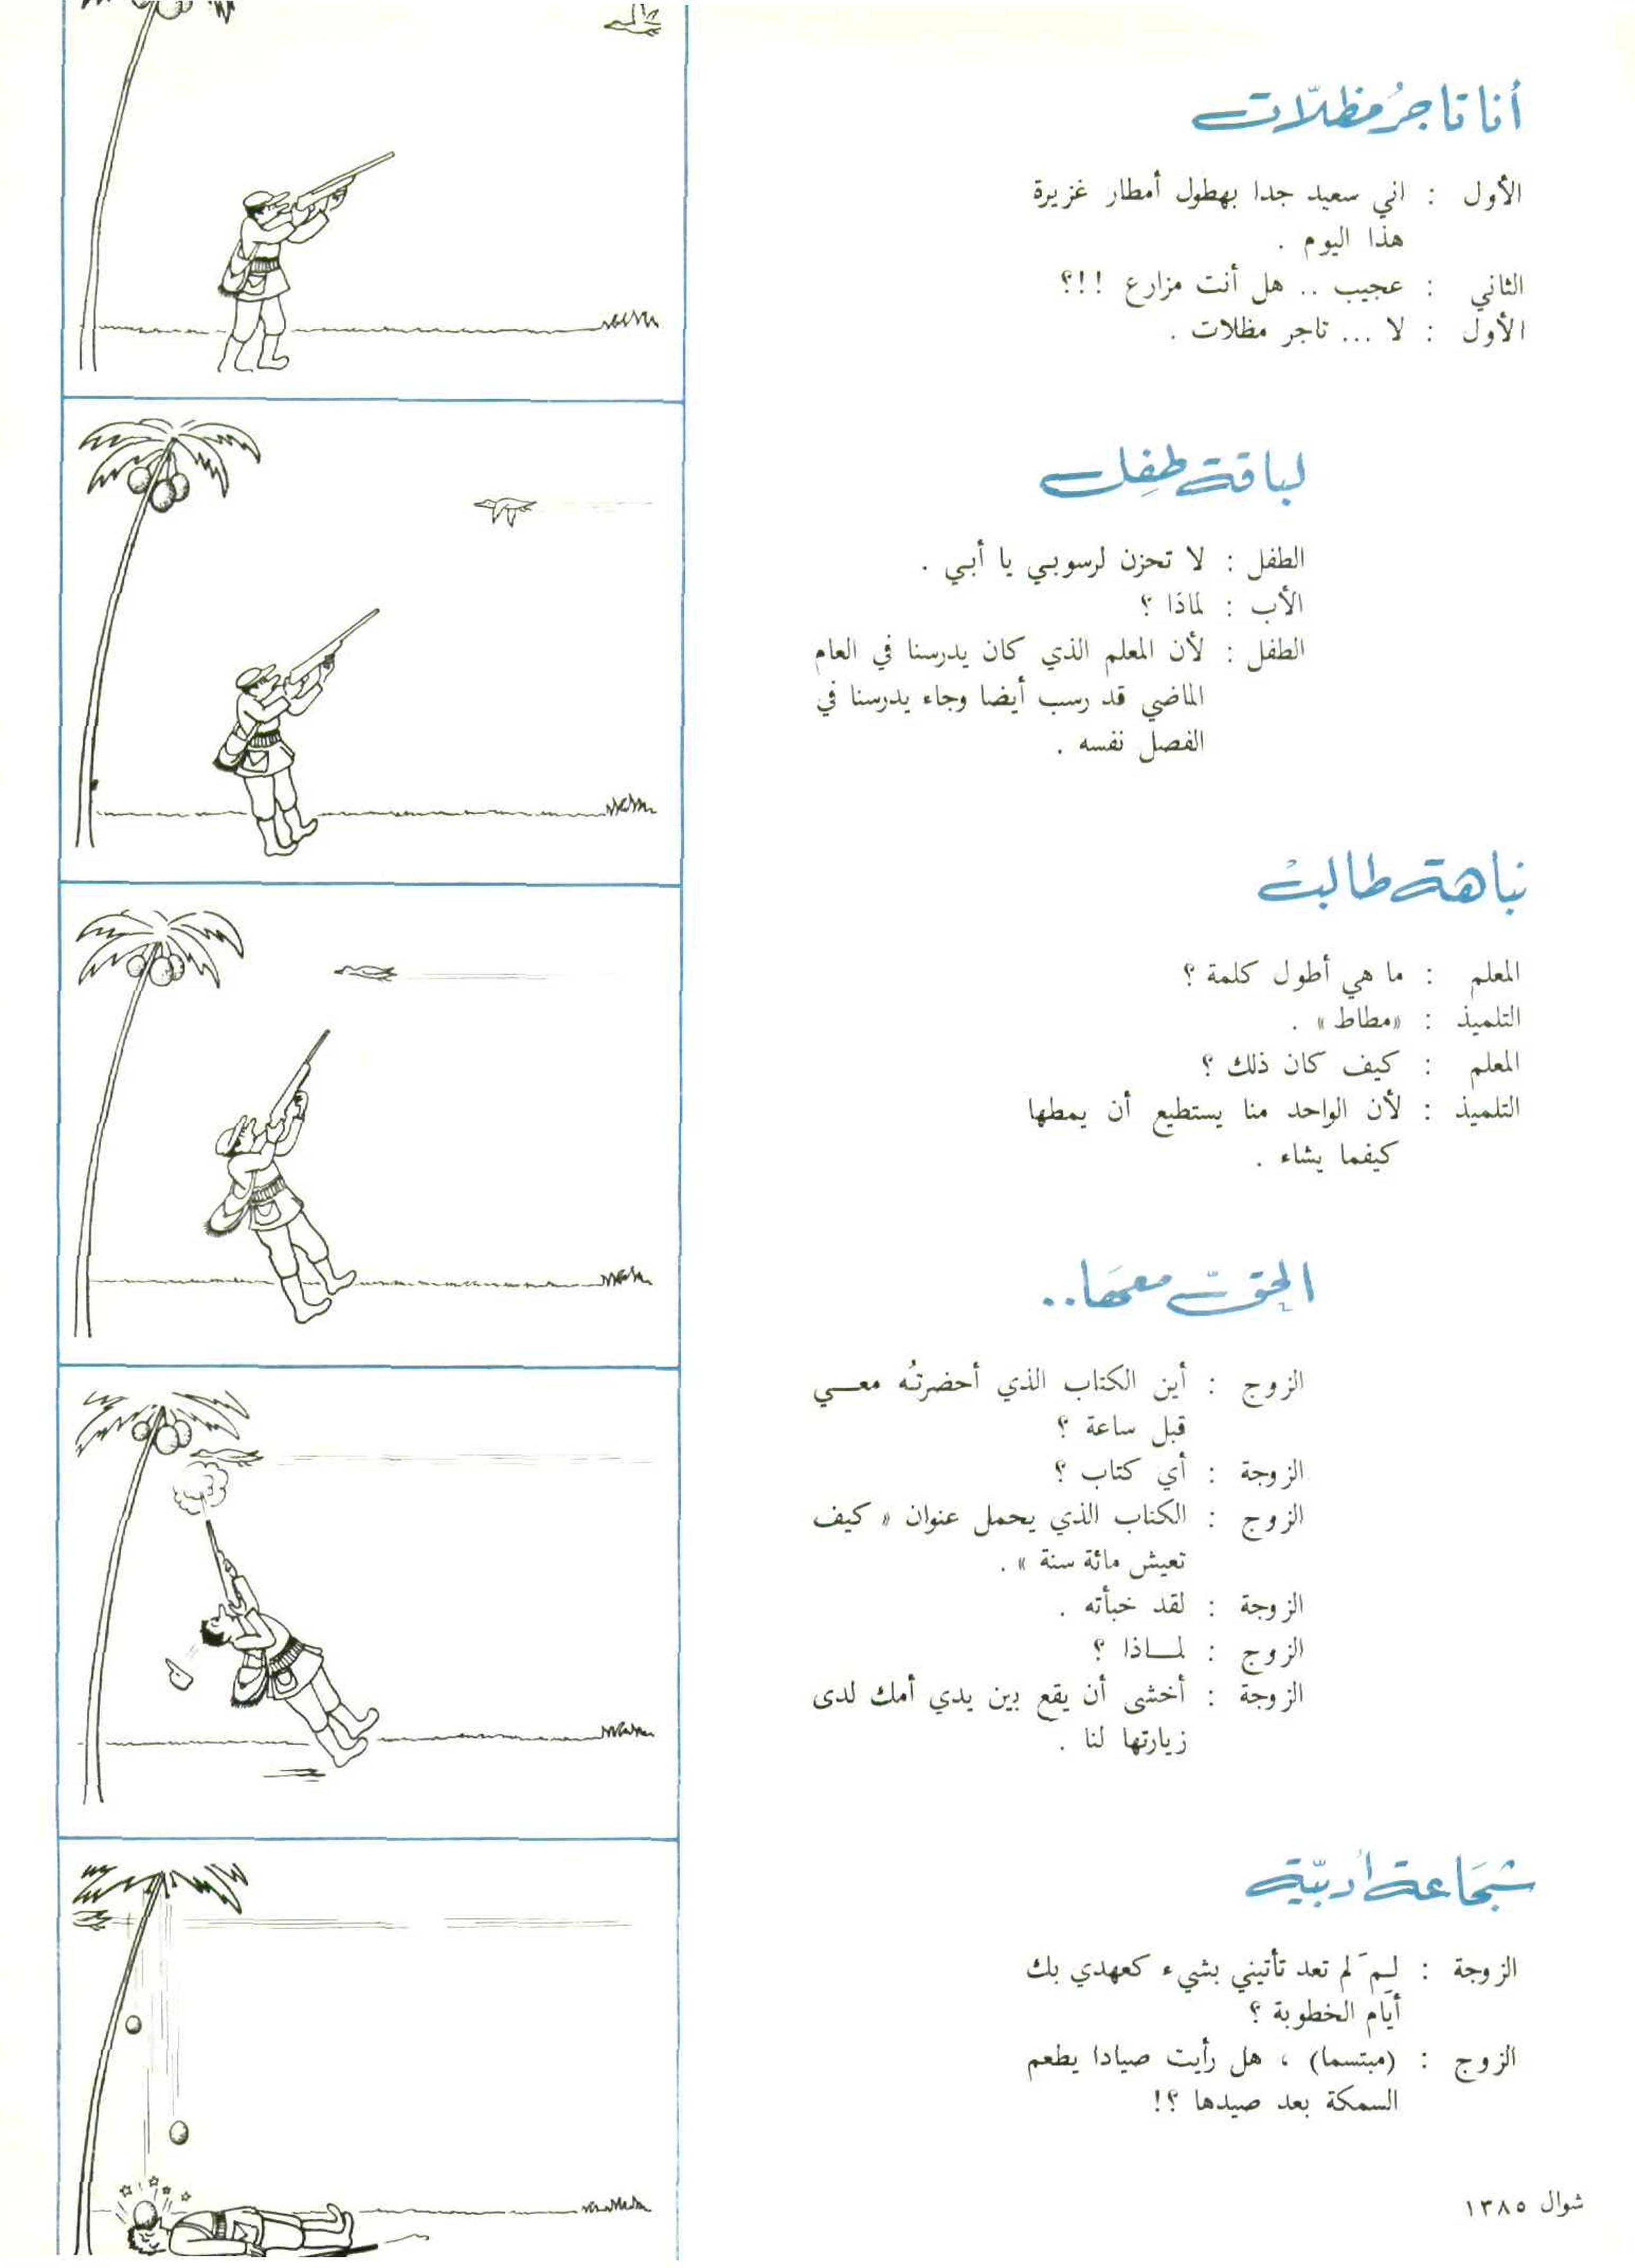 أنا تاجرُ مظلّات
الأول : اني سعيد جدا بهطول أمطار غزيرة
هذا اليوم .
الثاني : عجيب .. هل أنت مزارع !!؟
الأول : لا ... تاجر مظلات .
لباقة طفِل
الطفل : لا تحزن لرسوبي يا أبي .
الأب : لماذا ؟
الطفل : لأن المعلم الذي كان يدرسنا في العام
الماضي قد رسب أيضا وجاء يدرسنا في
الفصل نفسه .
نباهة طالبْ
المعلم : ما هي أطول كلمة ؟
التلميذ : «مطاط» .
المعلم : كيف كان ذلك ؟
التلميذ : لأن الواحد منا يستطيع أن يمطها
كيفما يشاء .
الحِقّ معهَا..
الزوج : أين الكتاب الذي أحضرتُه معـــي
قبل ساعة ؟
الزوجة : أي كتاب ؟
الزوج : الكتاب الذي يحمل عنوان « كيف
تعيش مائة سنة » .
الزوجة : لقد خبأته .
الزوج : لمـــاذا ؟
الزوجة : أخشى أن يقع بين يدي أمك لدى
زيارتها لنا .
شجَاعة أدبيّة
الزوجة : لِـمَ لم تعد تأتيني بشيء كعهدي بك
أيام الخطوبة ؟
الزوج : (مبتسما) ، هل رأيت صيادا يطعم
السمكة بعد صيدها ؟!
شوال ١٣٨٥